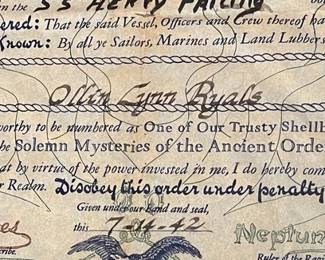 in the S S HENRY
ered: That the said Vessel, Officers and Crew thereof ha
Known: By all ye Sailors, Marines and Land Lubbers
Ollin Lynn Ryals
worthy to be numbered as One of Our Trusty Shellb
the Solemn Mysteries of the Ancient Order
that by virtue of the power invested in me, I do hereby com
r Realm. Disobey this order under penalty
Given under our hand and seal,
this 1-14-42
Neptun
es
cribe.
Ruler of the Ra